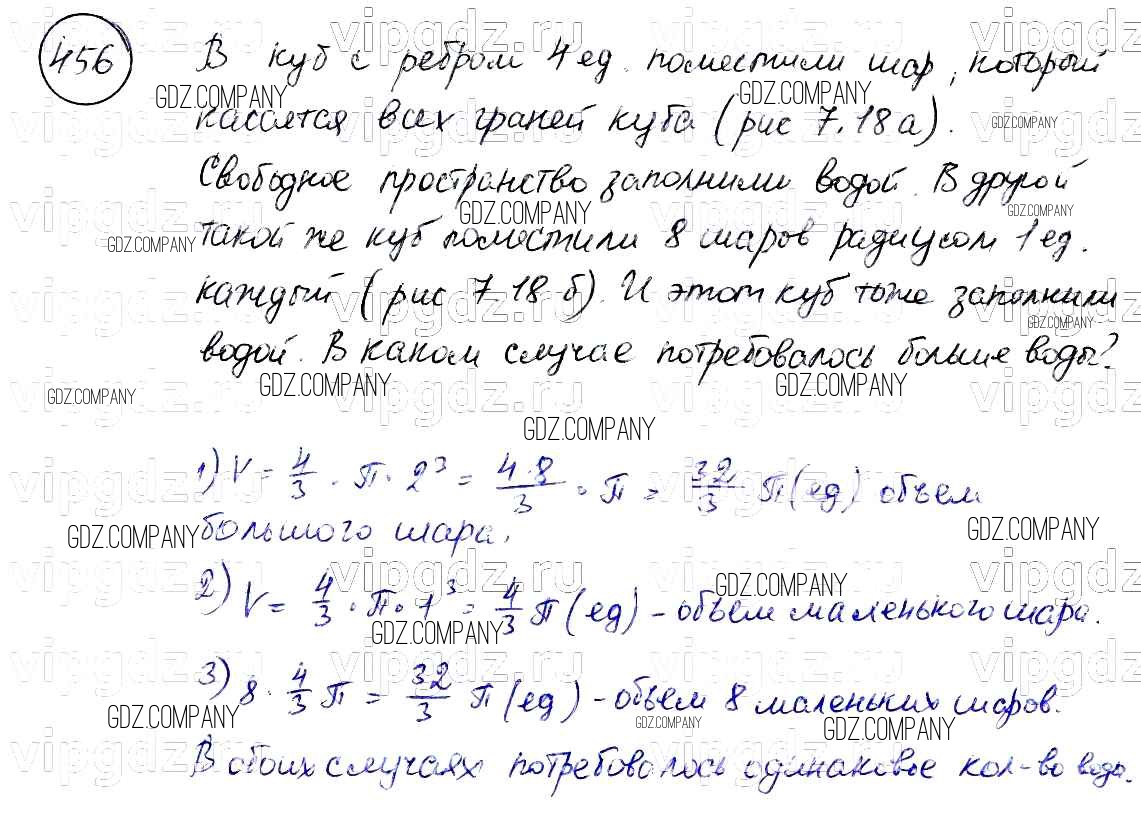 456 В куб с ребром 4 ед. поместили шар, который
касается всех граней куба (рис 7.18 а).
Свободное пространство заполнили водой. В другой
такой же куб поместили 8 шаров радиусом 1 ед.
каждый (рис 7.18 б). И этот куб тоже заполнили
водой. В каком случае потребовалось больше воды?
1) V = 4/3 · π · 2³ = 4·8/3 · π = 32/3 π (ед) объем
большого шара.
2) V = 4/3 · π · 1³ = 4/3 π (ед) - объем маленького шара.
3) 8 · 4/3 π = 32/3 π (ед) - объем 8 маленьких шаров.
В обоих случаях потребовалось одинаковое кол-во воды.
vipgdz.ru
GDZ.COMPANY